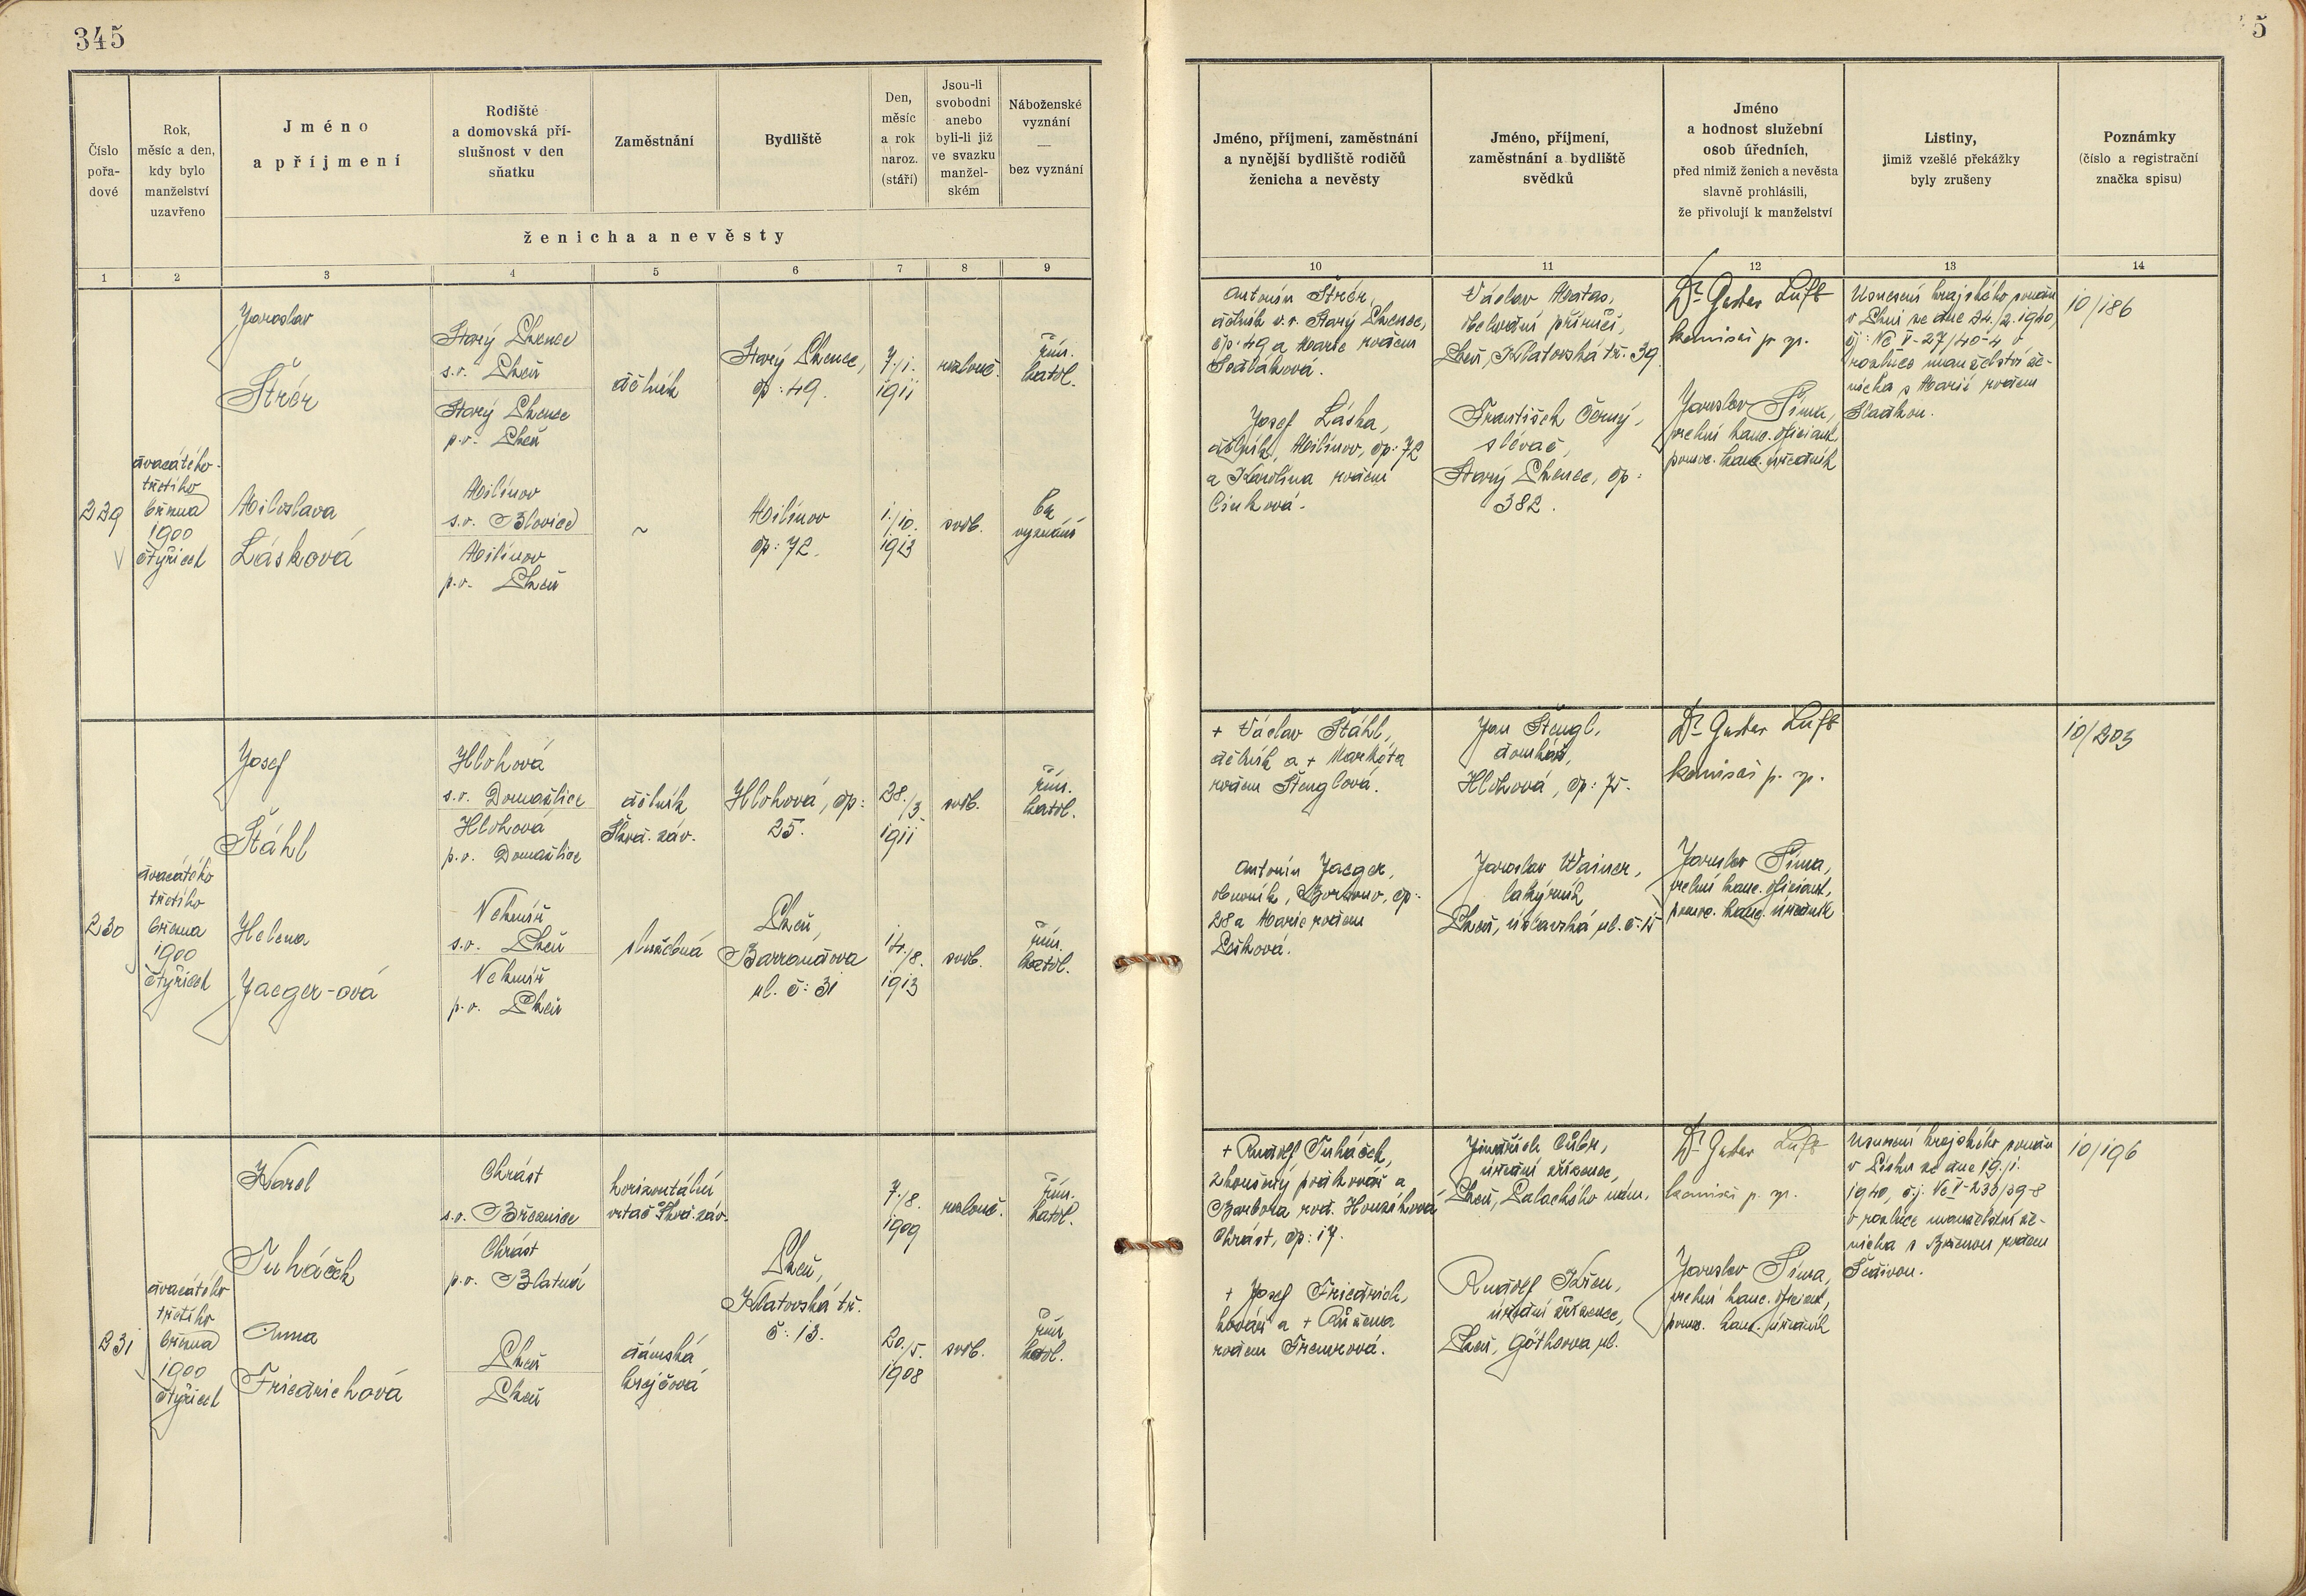 345
5
Číslo
pořa-
dové
Rok,
měsíc a den,
kdy bylo
manželství
uzavřeno
Jméno
a příjmení
Rodiště
a domovská pří-
slušnost v den
sňatku
Zaměstnání
Bydliště
Den,
měsíc
a rok
naroz.
(stáří)
Jsou-li
svobodni
anebo
byli-li již
ve svazku
manžel-
ském
Náboženské
vyznání
—
bez vyznání
ženicha a nevěsty
Jméno, příjmení, zaměstnání
a nynější bydliště rodičů
ženicha a nevěsty
Jméno, příjmení,
zaměstnání a bydliště
svědků
Jméno
a hodnost služební
osob úředních,
před nimiž ženich a nevěsta
slavně prohlásili,
že přivolují k manželství
Listiny,
jimiž vzešlé překážky
byly zrušeny
Poznámky
(číslo a registrační
značka spisu)
1 2 3 4 5 6 7 8 9 10 11 12 13 14
229
dvacátého
třetího
března
1900
čtyřicet
Jaroslav
Štrér
Starý Plzenec
s.o. Plzeň
Starý Plzenec
p.o. Plzeň
dělník
Starý Plzenec,
čp: 49.
7./1.
1911
rozlouč.
řím.
katol.
Miloslava
Lásková
Milínov
s.o. Blovice
Milínov
p.o. Plzeň
~
Milínov
čp: 72.
1./10.
1913
svob.
bez
vyznání
Antonín Štrér,
dělník v.v. Starý Plzenec,
čp: 49 a Marie rodem
Sedláková.
Josef Láska,
dělník, Milínov, čp: 72
a Karolína rodem
Cinková.
Václav Matas,
obchodní příručí,
Plzeň, Klatovská tř. 39
František Černý,
slévač,
Starý Plzenec, čp:
382.
Dr Gustav Luft
komisař p. zp.
Jaroslav Šíma,
vrchní kanc. oficiant,
pomoc. kanc. úředník
Usnesení krajského soudu
v Plzni ze dne 24./2. 1940,
čj: Nc V-27/40-4 o
rozluce manželství že-
nicha s Marií rodem
Sladkou.
10/186
230
dvacátého
třetího
března
1900
čtyřicet
Josef
Štáhl
Hlohová
s.o. Domažlice
Hlohová
p.o. Domažlice
dělník
Škod. záv.
Hlohová, čp:
25.
28./3.
1911
svob.
řím.
katol.
Helena
Jaeger-ová
Nekmíř
s.o. Plzeň
Nekmíř
p.o. Plzeň
služebná
Plzeň,
Barrandova
ul. č: 31
14./8.
1913
svob.
řím.
katol.
+ Václav Štáhl,
dělník a + Markéta
rodem Štenglová.
Antonín Jaeger,
obuvník, čp:
28 a Marie rodem
Jan Štengl,
domkář,
Hlohová, čp: 75.
Jaroslav Wainer,
lakýrník
Plzeň, úslavská ul. č: 15
Dr Gustav Luft
komisař p. zp.
Jaroslav Šíma,
vrchní kanc. oficiant,
pomoc. kanc. úředník
10/203
231
dvacátého
třetího
března
1900
čtyřicet
Karel
Tuháček
Chrást
s.o. Březnice
Chrást
p.o. Blatná
horizontální
vrtač Škod. záv.
Plzeň,
Klatovská tř.
č: 13.
7./8.
1909
rozlouč.
řím.
katol.
Anna
Friedrichová
Plzeň
Plzeň
dámská
krejčová
20./5.
1908
svob.
řím
katol.
+ Rudolf Tuháček,
zkoušený podkovář a
Barbora rod. Honzíková
Chrást, čp: 17.
+ Josef Friedrich,
kovář a + Růžena
rodem
Jindřich Cibr,
úřední zřízenec,
Plzeň, Palackého nám.
Rudolf Křen,
úřední zřízenec,
Plzeň, Göthova ul.
Dr Gustav Luft
komisař p. zp.
Jaroslav Šíma,
vrchní kanc. oficiant,
pomoc. kanc. úředník
Usnesení krajského soudu
v Písku ze dne 19./1.
1940, č.j. Nc V-233/39-8
o rozluce manželství že-
nicha s Boženou rodem
Šedivou.
10/196